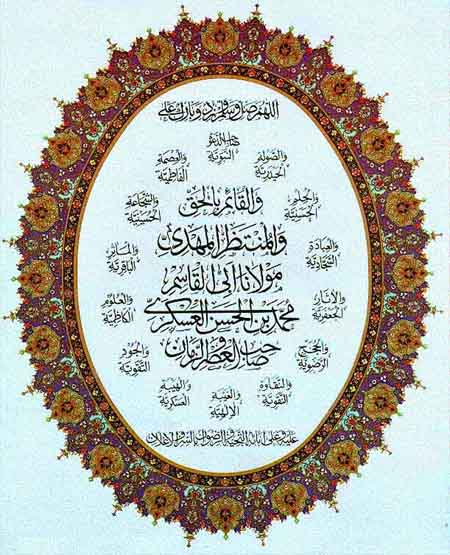 اللهم صل وسلم وزد وبارك على
صاحب الدعوة
النبوية
والصولة
الحيدرية
والعصمة
الفاطمية
والحلم
الحسنية
والشجاعة
الحسينية
والعبادة
السجادية
والمآثر
الباقرية
والآثار
الجعفرية
والعلوم
الكاظمية
والحجج
الرضوية
والجود
التقوية
والنقاوة
النقوية
والهيبة
العسكرية
والغيبة
الالهية
والقائم بالحق
والمنتظر المهدي
مولانا ابى القاسم
محمد بن الحسن العسكري
صاحب العصر والزمان
عليه وعلى آبائه التحية والرضوان بالسر والاعلان